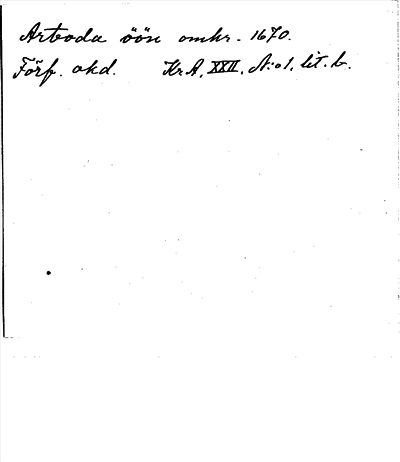 Arboda öön omkr. 1670.
Förf. okd. KrA, XXII, A:o1, lit. b.